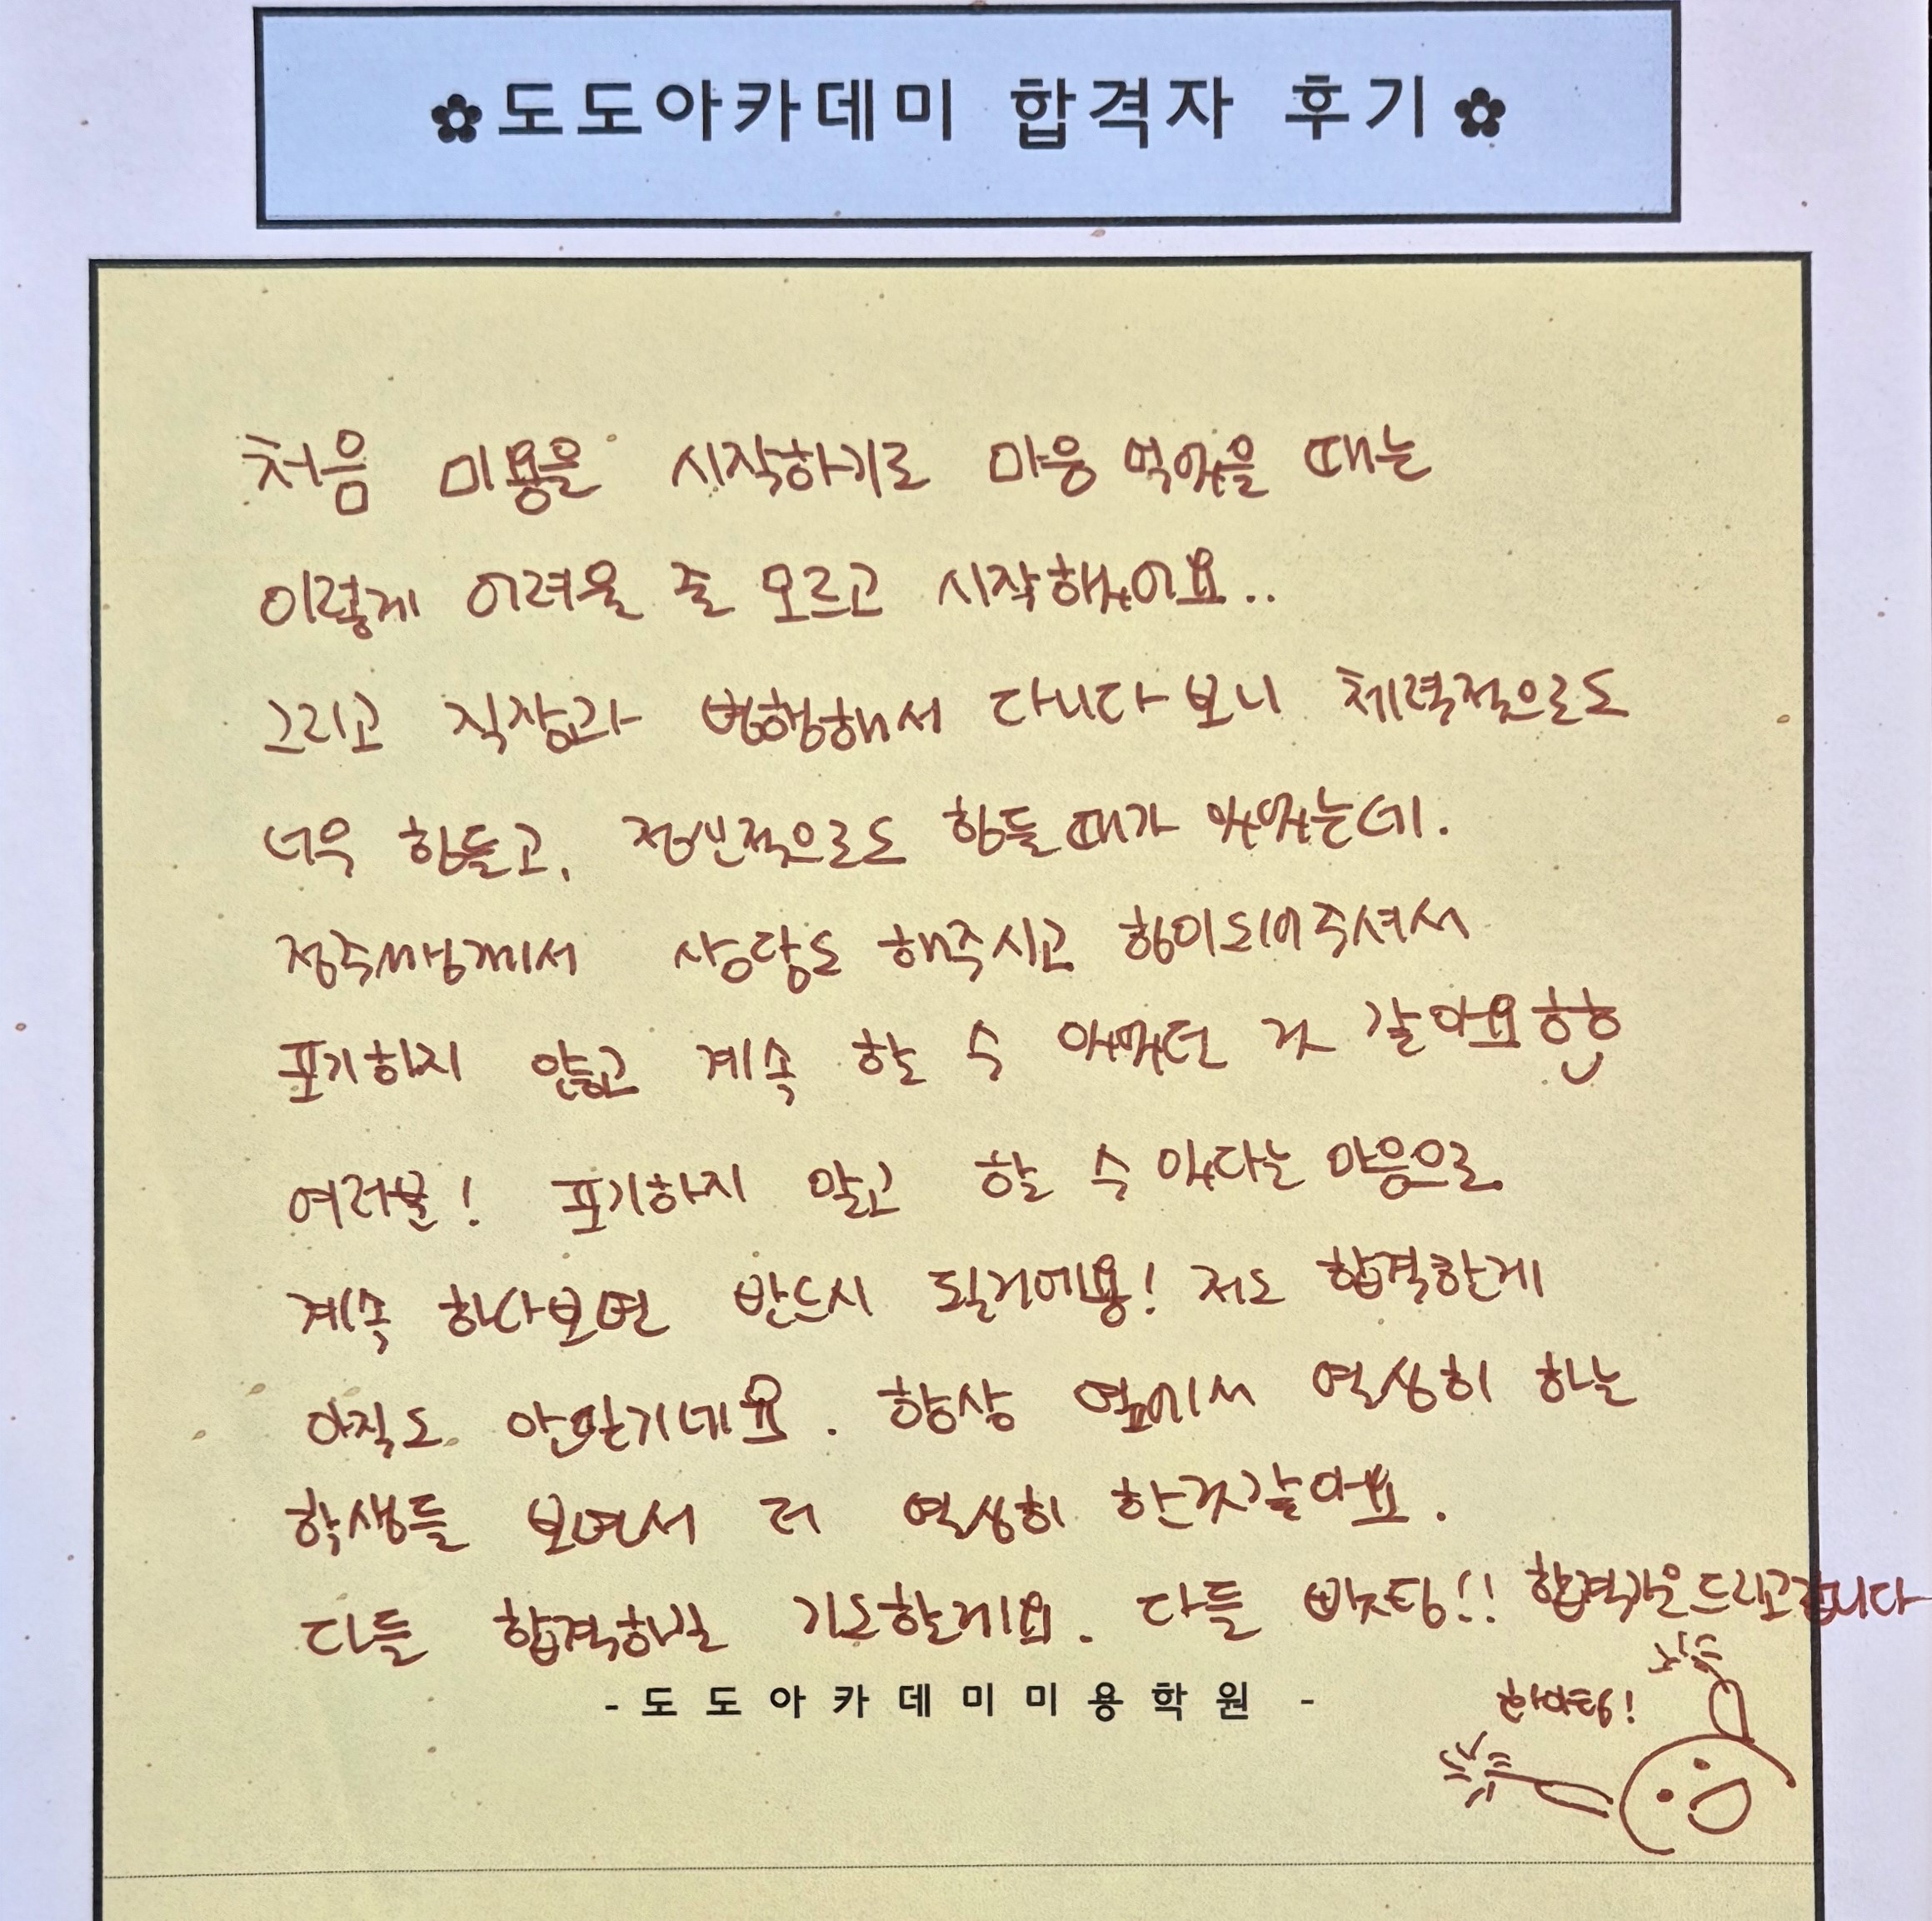 ✿도도아카데미 합격자 후기✿
처음 미용을 시작하기로 마음 먹었을 때는
이렇게 어려울 줄 모르고 시작했어요..
그리고 직장과 병행해서 다니다보니 체력적으로도
너무 힘들고, 정신적으로도 힘들때가 있었는데.
정주쌤께서 상담도 해주시고 힘이되어주셔서
포기하지 않고 계속 할 수 있었던 것 같아요 ㅎㅎ
여러분! 포기하지 말고 할 수 있다는 마음으로
계속 하다보면 반드시 될거에용! 저도 합격한게
아직도 안믿기네요. 항상 옆에서 열심히 하는
학생들 보면서 더 열심히 한것같아요.
다들 합격하길 기도할게요. 다들 빠팅!! 합격기운드리고갑니다
화이팅!
- 도도아카데미미용학원 -